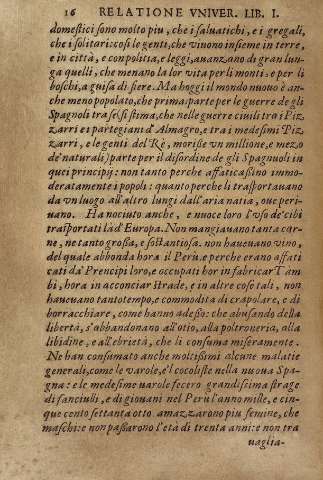 16 RELATIONE VNIVER. LIB. I.
domestici sono molto piu, che i saluatichi, e i gregali,
che i solitari: così le genti, che viuono insieme in terre,
e in città, e con politia, e leggi, auanzano di gran lun-
ga quelli, che menano la lor vita per li monti, e per li
boschi, a guisa di fiere. Ma hoggi il mondo nuouo è an-
che meno popolato, che prima: parte per le guerre de gli
Spagnoli tra se (si stima, che nelle guerre ciuili tra i Piz-
zarri e i partegiani d'Almagro, e tra i medesimi Piz-
zarri, e le genti del Rè, morisse vn millione, e mezo
de' naturali) parte per il disordine de gli Spagnuoli in
quei principij: non tanto perche affaticassino immo-
deratamente i popoli: quanto perche li trasportauano
da vn luogo all'altro lungi dall'aria natia, oue peri-
uano. Ha nociuto anche, e nuoce loro l'vso de' cibi
trasportati là d'Europa. Non mangiauano tanta car-
ne, ne tanto grossa, e sostantiosa. non haueuano vino,
del quale abbonda hora il Peru. e perche erano affati
cati da' Prencipi loro, e occupati hor in fabricar Tam
bi, hora in acconciar strade, e in altre cose tali, non
haueuano tanto tempo, e commodità di crapolare, e di
borracchiare, come hanno adesso: che abusando della
libertà, s'abbandonano all'otio, alla poltroneria, alla
libidine, e all'ebrietà, che li consuma miseramente.
Ne han consumato anche moltissimi alcune malatie
generali, come le varole, e'l cocoliste nella nuoua Spa-
gna: e le medesime varole fecero grandissima strage
di fanciulli, e di giouani nel Perù l'anno mille, e cin-
que cento settanta otto amazzarono piu femine, che
maschi: e non passarono l'età di trenta anni: e non tra
uaglia-